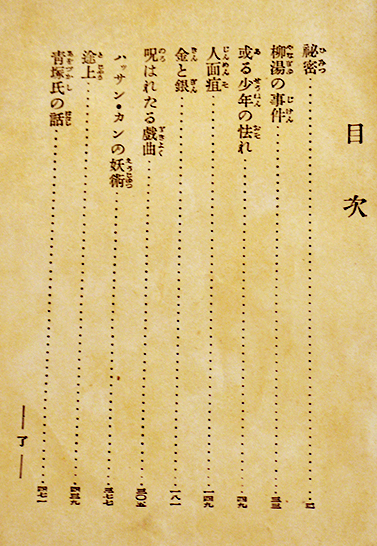 目次
秘密……三
柳湯の事件……三三
或る少年の怯れ……四九
人面疽……一四九
金と銀……一八一
呪はれたる戯曲……三〇五
ハッサン・カンの妖術……三七七
途上……四三九
青塚氏の話……四七一
―了―